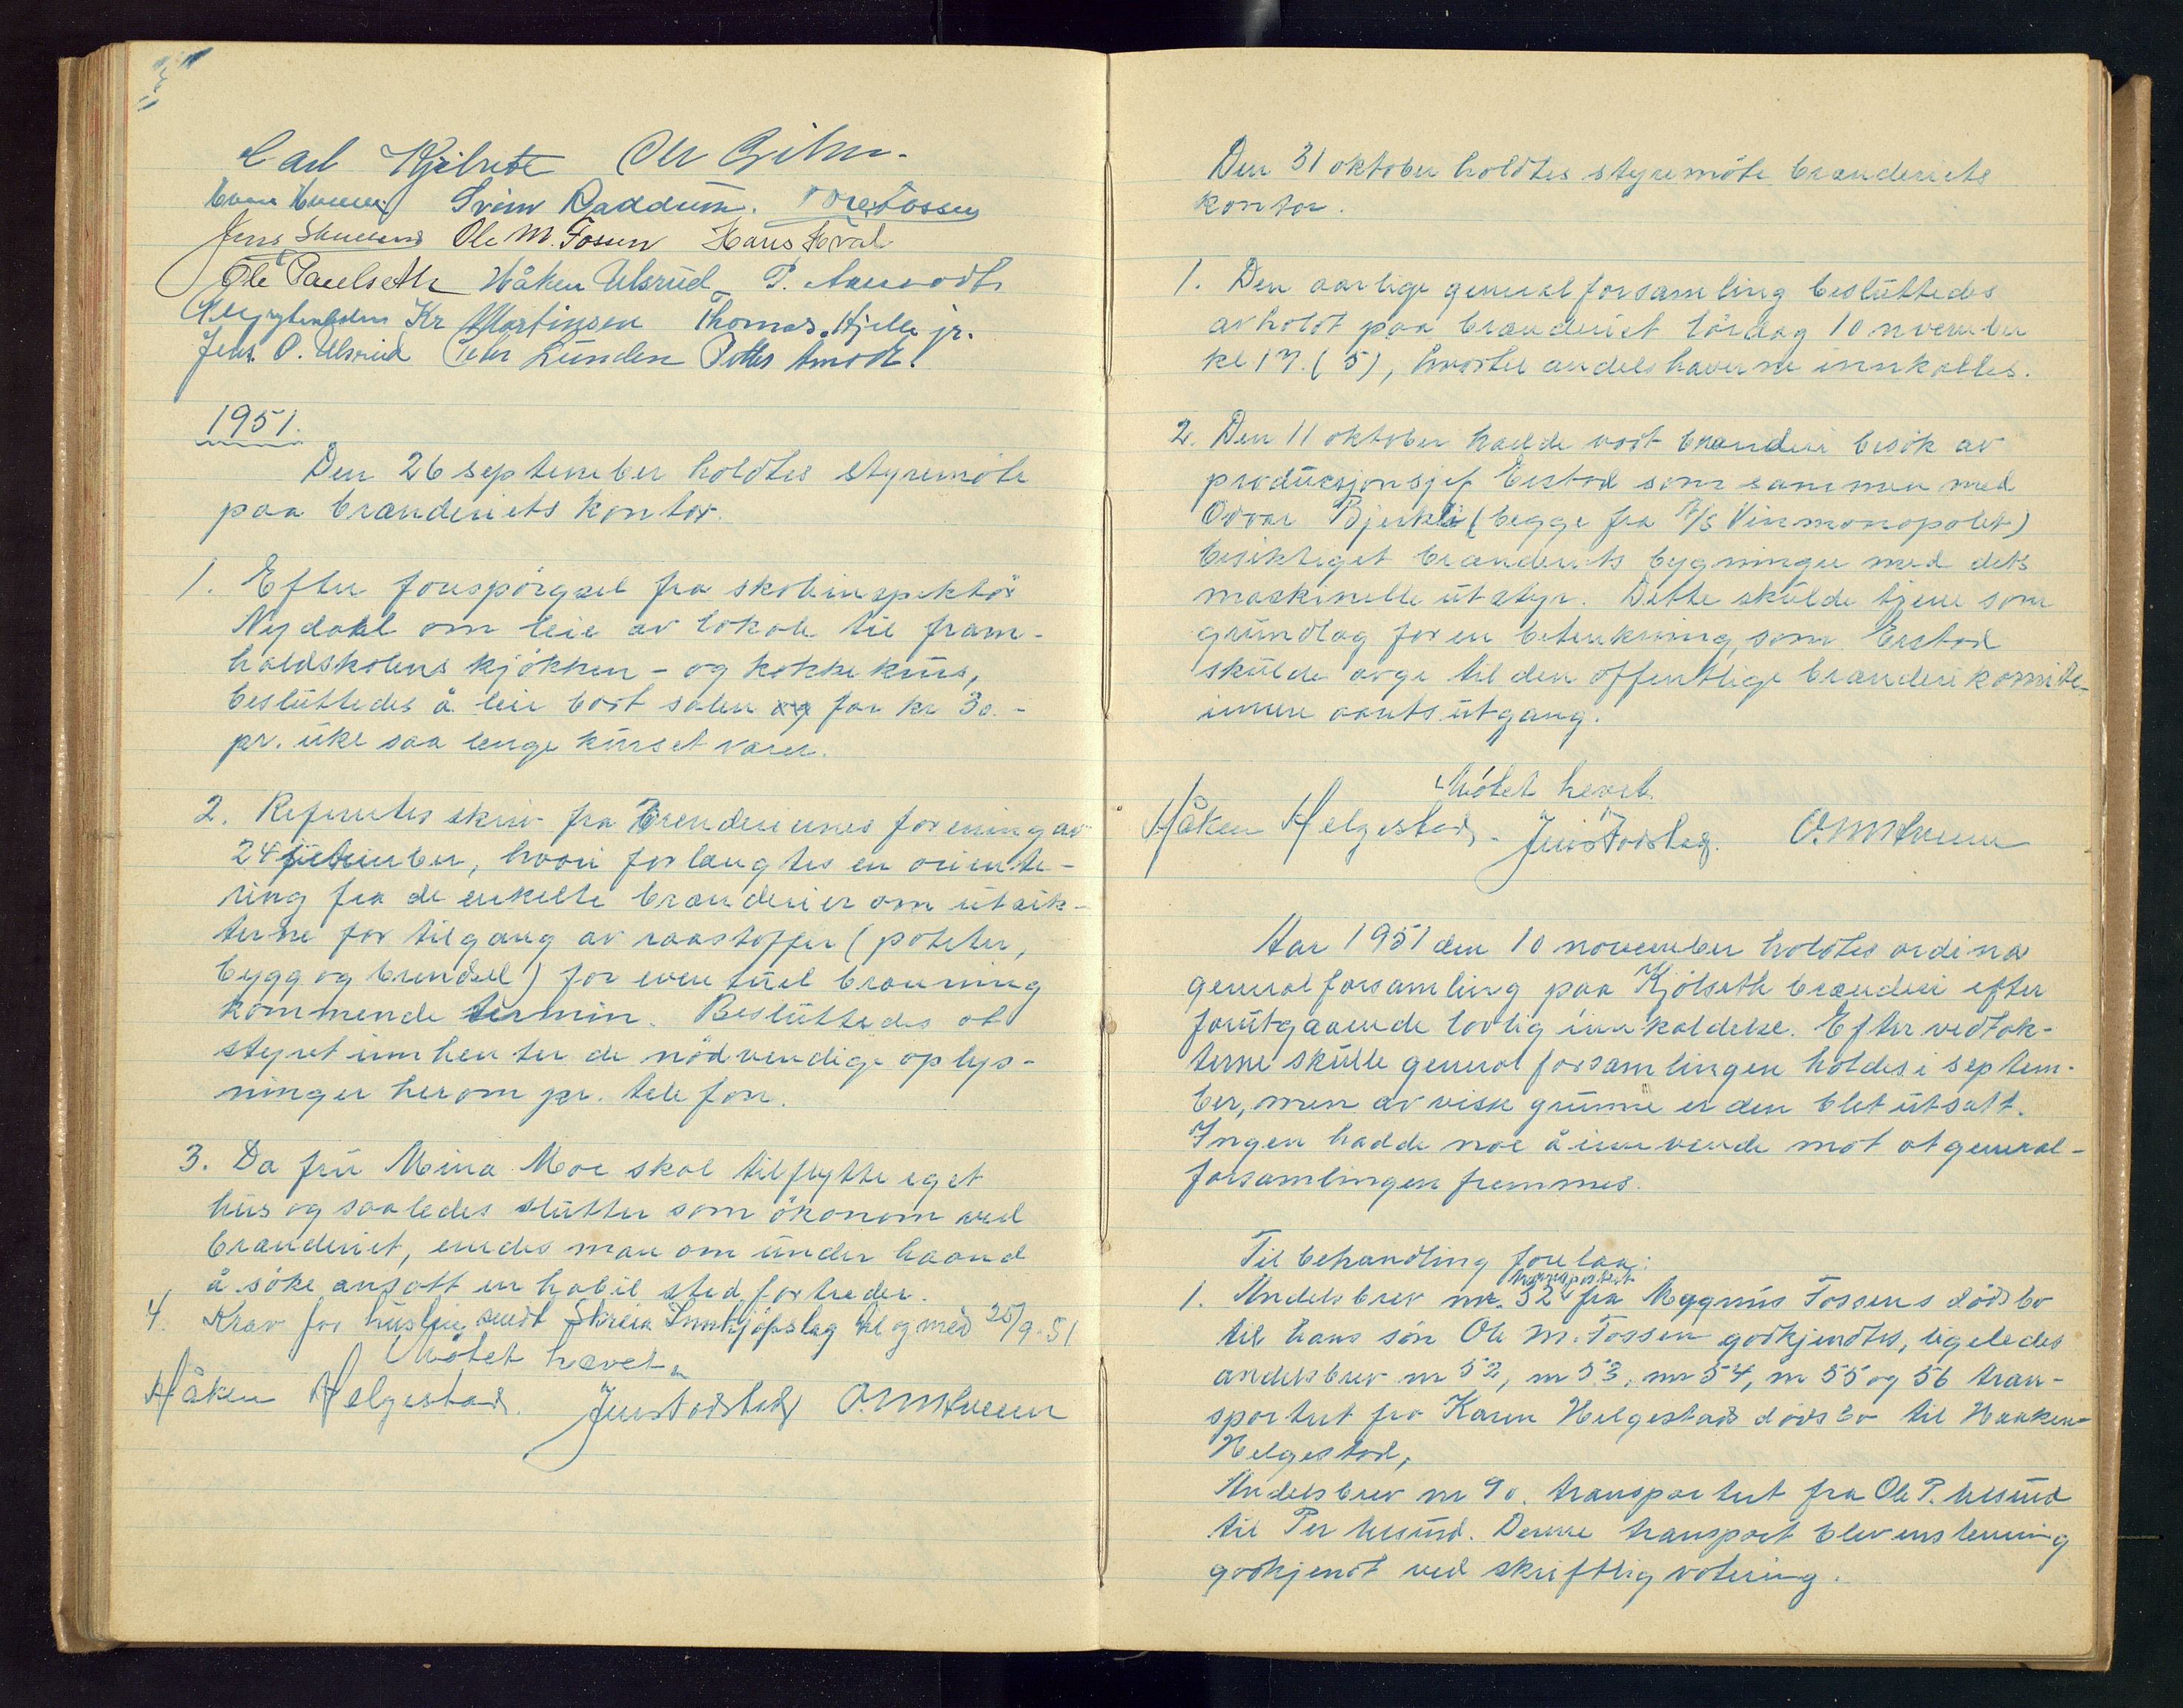 Carl Kjelset Ole
Svein Raddum. Tore Fossen
Jens Ole M. Fossen Hans Hval
Ole Paulseth Håken Ulsrud P. Amodt
Kr Martinsen Thomas Hjelle jr.
Jens O. Ulsrud Peder Lunden Petter Amodt.
1951.
Den 26 september holdtes styremöte
paa brænderiets kontor.
1. Efter forespörgsel fra skoleinspektör
Nydahl om leie av lokale til fram-
haldskolens kjökken- og kokkekurs,
besluttedes å leie bort salen for kr 30.-
pr. uke saa lenge kurset varer.
2. Refertes skriv fra Brenderienes forening av
24 september, hvori forlangtes en oriente-
ring fra de enkelte brænderier om utsik-
terne for tilgang av raastoffer (poteter,
bygg og brendsel) for eventuel brænning
kommende termin. Besluttedes at
styret innhenter de nödvendige oplys-
ninger herom pr. telefon.
3. Da fru Mina Moe skal tilflytte eget
hus og saaledes slutter som ökonom ved
brænderiet, enedes man om under haand
å söke ansatt en habil stedfortreder.
4. Krav for husleie sendt Skreia Innkjöpslag til og med 25/9-51
Mötet hævet.
Håken Helgestad. Jens Todstad O. M. Hveem
Den 31 oktober holdtes styremöte brænderiets
kontor.
1. Den aarlige generalforsamling besluttedes
avholdt paa brænderiet lördag 10 november
kl 17. (5), hvortil andelshaverne innkalles.
2. Den 11 oktober hadde vort brænderi besök av
produksjonsjef Erstad som sammen med
Odvar Bjerkli (begge fra A/S Vinmonopolet)
besiktiget brænderiets bygninger med dets
maskinelle utstyr. Dette skulde tjene som
grundlag for en betenkning, som Erstad
skulde avge til den offentlige brænderikomite
innen aarets utgang.
Mötet hevet.
Håken Helgestad. Jens Todstad. O. M. Hveem
Aar 1951 den 10 november holdtes ordinær
generalforsamling paa Kjölseth brænderi efter
forutgaaende lovlig innkaldelse. Efter vedtæk-
terne skulle generalforsamlingen holdes i septem-
ber, men av visse grunne er den blet utsatt.
Ingen hadde noe å innvende mot at general-
forsamlingen fremmes.
Til behandling forelaa:
transportert
1. Andelsbrev nr. 32 fra Magnus Fossens dödsbo
til hans sön Ole M. Fossen godkjendtes, ligeledes
andelsbrev nr 52, nr 53, nr 54, nr 55 og 56 tran-
sportert fra Karen Helgestads dödsbo til Haaken
Helgestad,
Andelsbrev nr 90. transportert fra Ole P. Ulsrud
til Per Ulsrud. Denne transport blev enstemmig
godkjendt ved skriftlig votering.